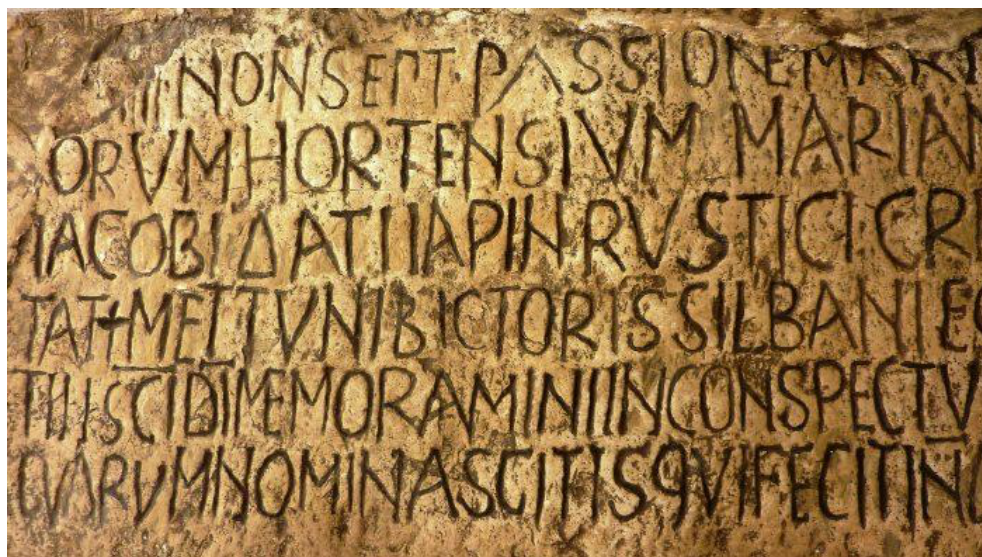 IIII NON SEPT· PASSIONE MART
ORVM HORTENSIVM MARIAN
IACOBI DATI IAPIN RVSTICI CRI
TAT+ METTVNI BICTORIS SILBANI EG
TII SCI DI MEMORAMINI IN CONSPECTV
QVARVM NOMINA SCITIS QVI FECIT IN